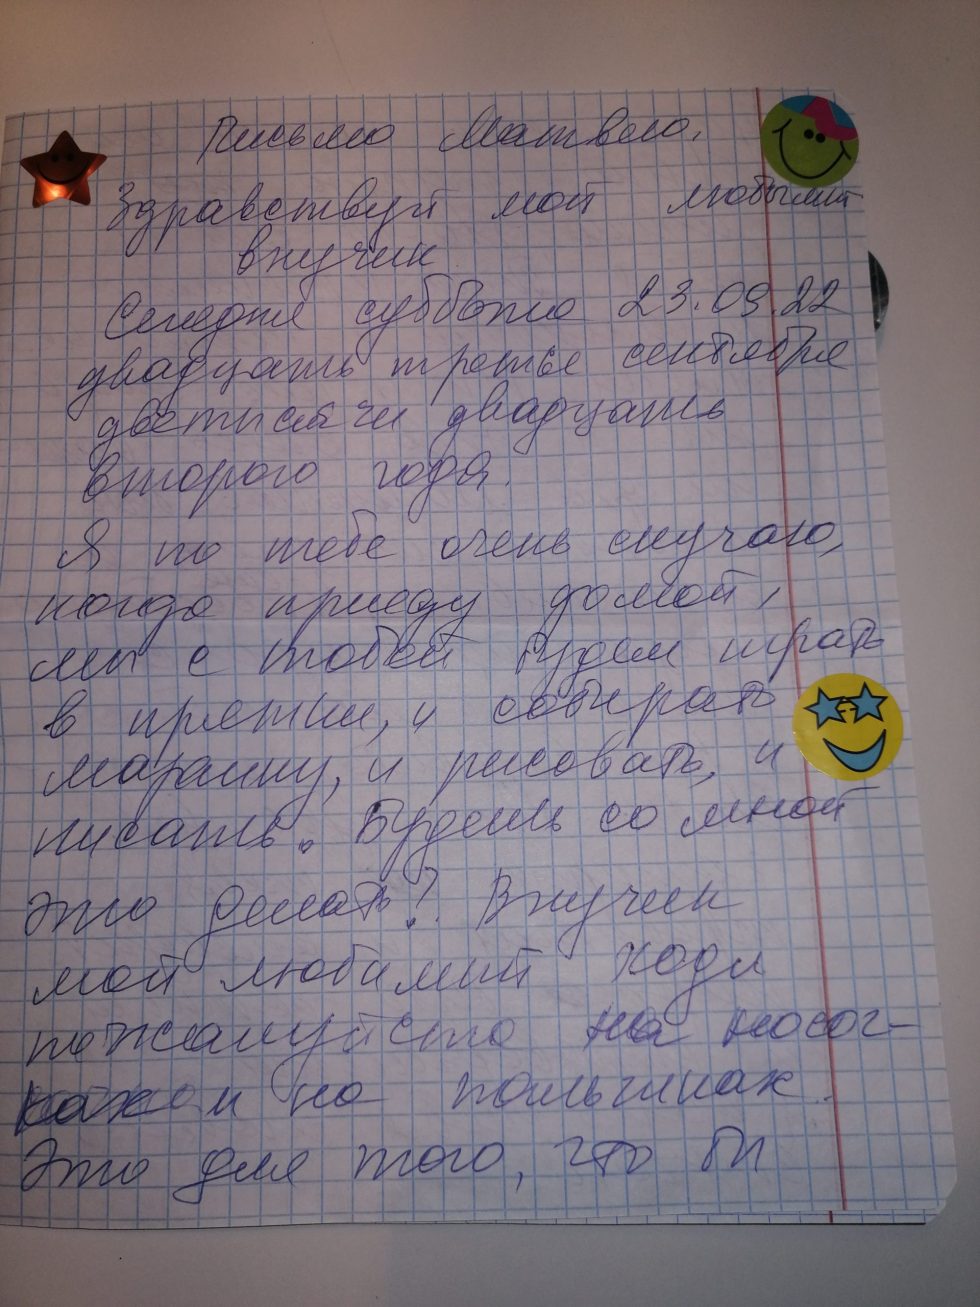 Письмо Матвею.
Здравствуй мой любимый
внучек
Сегодня суббота 23.09.22
двадцать третье сентября
две тысячи двадцать
второго года.
Я по тебе очень скучаю,
когда приеду домой,
мы с тобой будем играть
в прятки, и собирать
марашку, и рисовать, и
писать. Будешь со мной
это делать? Внучек
мой любимый ходи
пожалуйста на носоч-
ках и на пальчиках.
Это для того, что бы